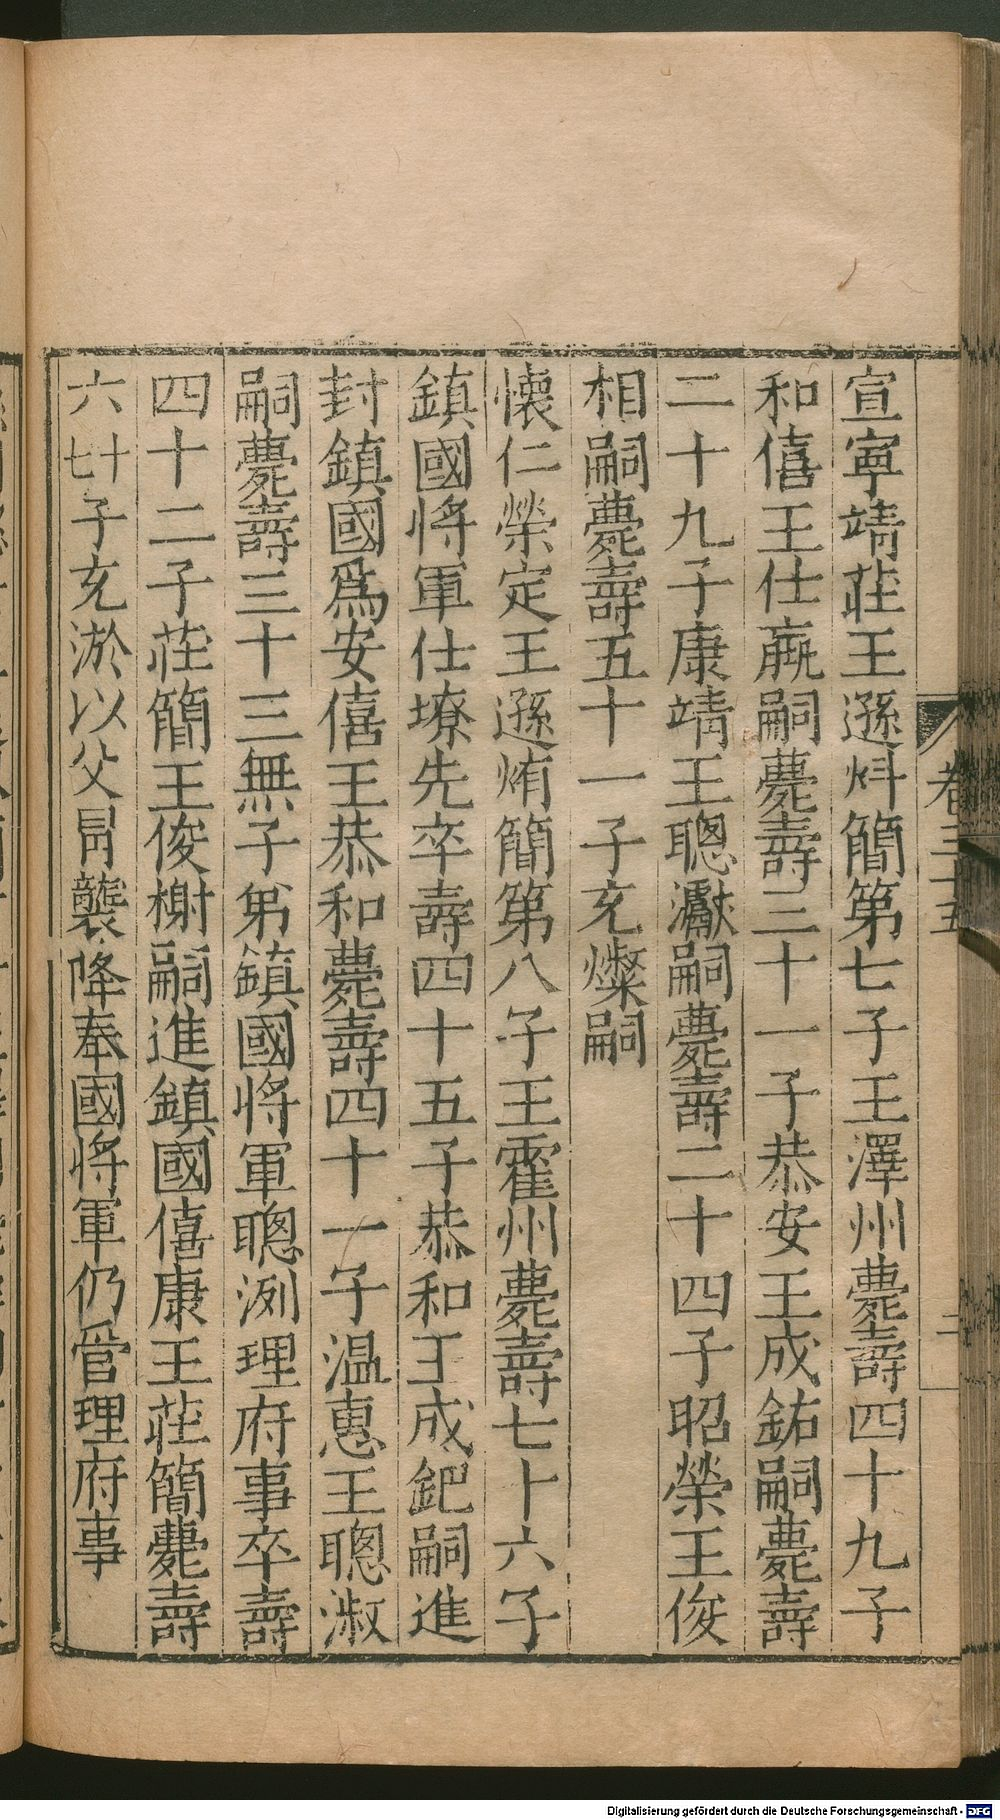 卷三十五
二
宣寧靖莊王遜炓簡第七子王澤州薨壽四十九子
和僖王仕𡐤嗣薨壽三十一子恭安王成鈷嗣薨壽
二十九子康靖王聰㶍嗣薨壽二十四子昭榮王俊
相嗣薨壽五十一子充燦嗣
懷仁榮定王遜烠簡第八子王霍州薨壽七十六子
鎮國將軍仕㙩先卒壽四十五子恭和王成鈀嗣進
封鎮國爲安僖王恭和薨壽四十一子温惠王聰淑
嗣薨壽三十三無子弟鎮國將軍聰洌理府事卒壽
四十二子莊簡王俊榭嗣進鎮國僖康王莊簡薨壽
六十七子充淤以父冒襲降奉國將軍仍管理府事
Digitalisierung gefördert durch die Deutsche Forschungsgemeinschaft - DFG